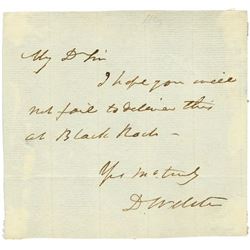 My D Sir
I hope you will
not fail to deliver this
at Black Rock -
Yrs truly
D Webster